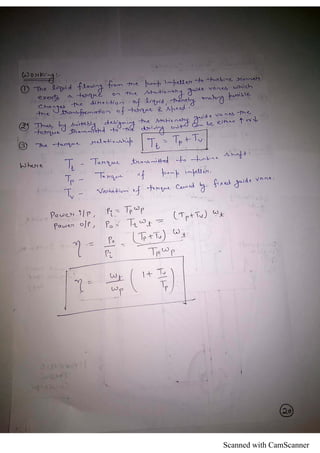 Working:-
① The liquid flowing from the pump impeller to turbine runner
exerts a torque on the stationary guide vanes which
changes the direction of liquid thereby making possible
the transformation of torque & speed.
② Thus by suitably designing the stationary guide vanes the
torque transmitted to the driving unit can be either ↑ or ↓
③ The torque relationship Tt = Tp + Tv
Where Tt - Torque transmitted to turbine shaft.
Tp - Torque of pump impeller.
Tv - Variation of torque caused by fixed guide vane.
Power i/p, Pi = Tpωp
Power o/p, Po = Ttωt = (Tp+Tv) ωt
η = Po/Pi = (Tp+Tv) ωt / Tpωp
η = ωt/ωp (1 + Tv/Tp)
20
Scanned with CamScanner